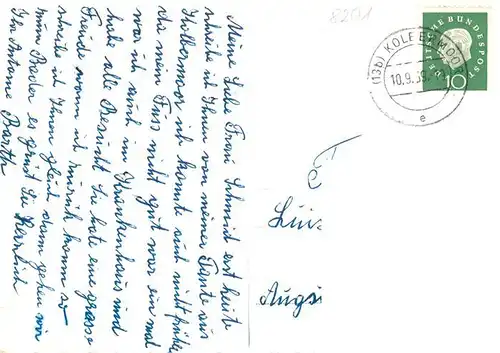 Meine Liebe Frau Schmid erst heute
schreibe ich Ihnen von meiner Tante aus
ich konnte nicht früher
da mein Fuss nicht gut war ein mal
war ich auch im Krankenhaus und
habe alle Besucht Sie hate eine grosse
Freude wenn ich zurück komm so
schreibe ich Ihnen gleich dann gehen wir
zum Baden es grüst Sie Herzlich
Ihr Antonie Barth
8201
DEUTSCHE BUNDESPOST
10
(13b) KOLBERMOOR
10.9.59
e
Luis
Augs